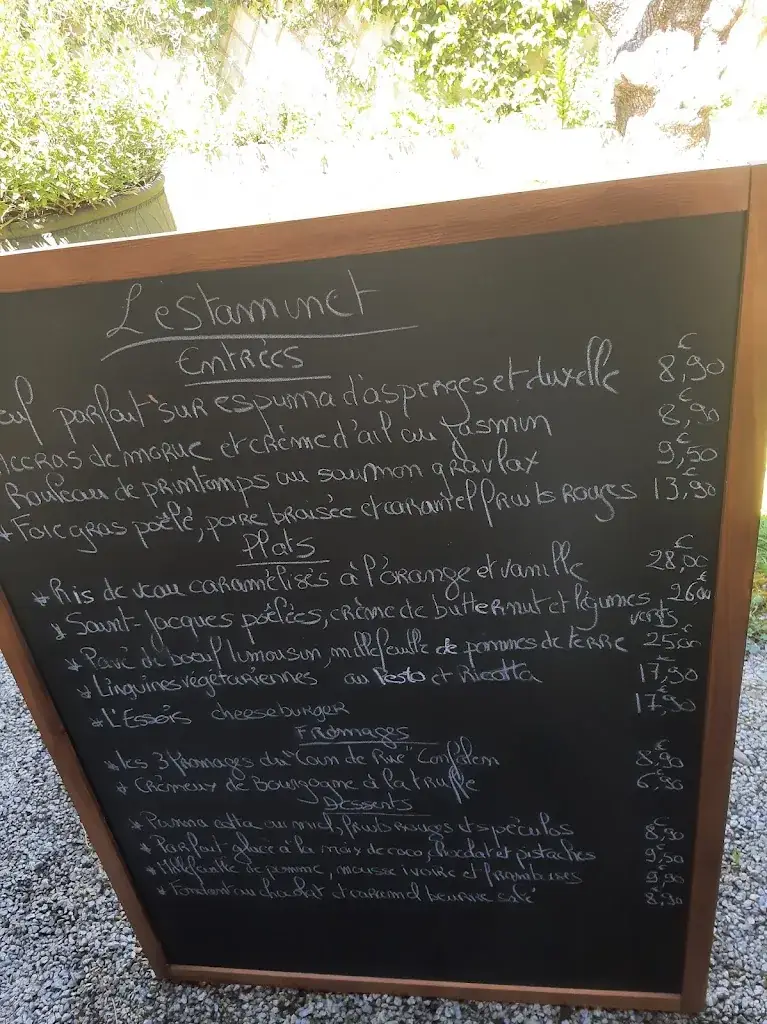 L'estaminet
Entrées
œuf parfait sur espuma d'asperges et duxelle 8,90 €
Accras de morue et crème d'ail au jasmin 8,90 €
Rouleau de printemps au saumon gravlax 9,50 €
* Foie gras poêlé, poire braisée et caramel fruits rouges 13,90 €
Plats
* Ris de veau caramélisés à l'orange et vanille 28,00 €
* Saint-Jacques poêlées, crème de butternut et légumes verts 26,00 €
* Pavé de boeuf limousin, millefeuille de pommes de terre 25,00 €
* Linguines végétariennes au Pesto et Ricotta 17,90 €
* L'Essois cheeseburger 17,90 €
Fromages
* Les 3 fromages du "Coin de Rue" Confolens 8,90 €
* Crémeux de Bourgogne à la truffe 6,90 €
Desserts
* Panna cotta au miel, fruits rouges et spéculos 8,90 €
* Parfait glacé à la noix de coco, chocolat et pistaches 9,50 €
* Millefeuille de pomme, mousse ivoire et framboises 9,90 €
* Fondant au chocolat et caramel beurre salé 8,90 €